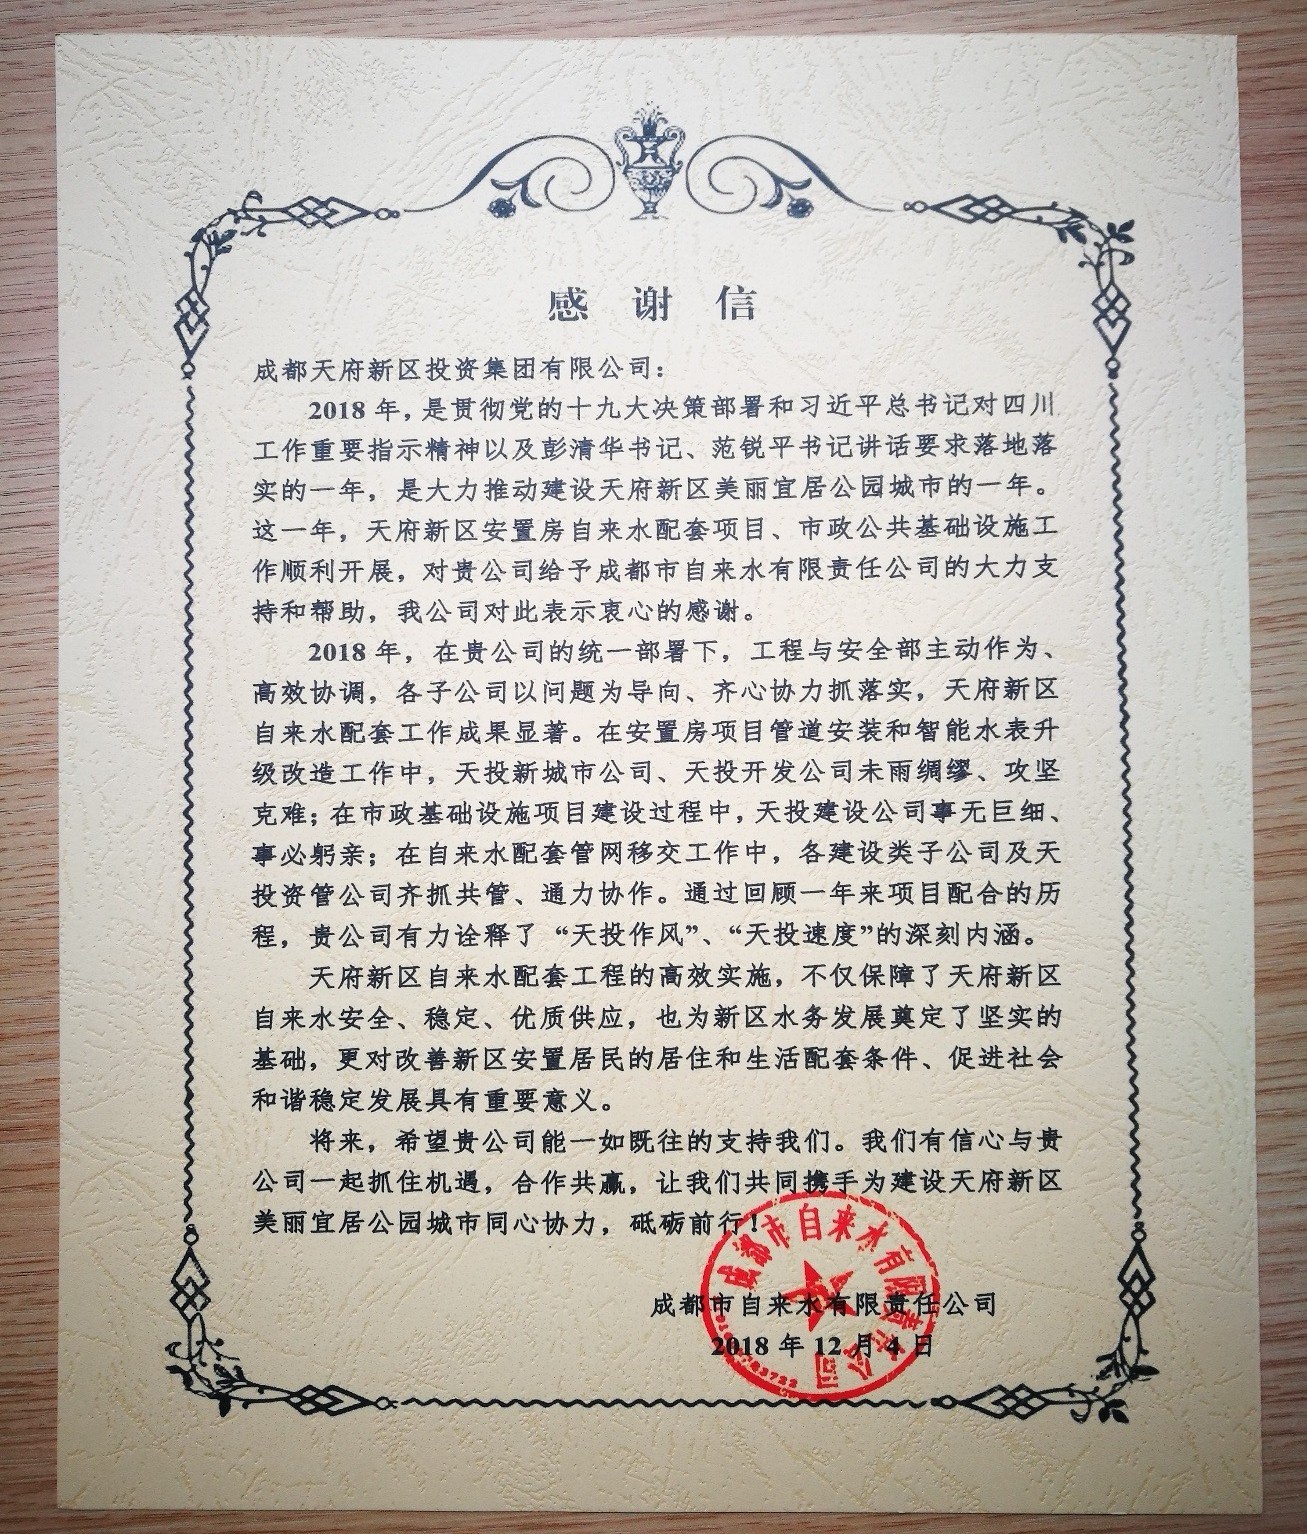 感谢信
成都天府新区投资集团有限公司：
2018年，是贯彻党的十九大决策部署和习近平总书记对四川
工作重要指示精神以及彭清华书记、范锐平书记讲话要求落地落
实的一年，是大力推动建设天府新区美丽宜居公园城市的一年。
这一年，天府新区安置房自来水配套项目、市政公共基础设施工
作顺利开展，对贵公司给予成都市自来水有限责任公司的大力支
持和帮助，我公司对此表示衷心的感谢。
2018年，在贵公司的统一部署下，工程与安全部主动作为、
高效协调，各子公司以问题为导向、齐心协力抓落实，天府新区
自来水配套工作成果显著。在安置房项目管道安装和智能水表升
级改造工作中，天投新城市公司、天投开发公司未雨绸缪、攻坚
克难；在市政基础设施项目建设过程中，天投建设公司事无巨细、
事必躬亲；在自来水配套管网移交工作中，各建设类子公司及天
投资管公司齐抓共管、通力协作。通过回顾一年来项目配合的历
程，贵公司有力诠释了“天投作风”、“天投速度”的深刻内涵。
天府新区自来水配套工程的高效实施，不仅保障了天府新区
自来水安全、稳定、优质供应，也为新区水务发展奠定了坚实的
基础，更对改善新区安置居民的居住和生活配套条件、促进社会
和谐稳定发展具有重要意义。
将来，希望贵公司能一如既往的支持我们。我们有信心与贵
公司一起抓住机遇，合作共赢，让我们共同携手为建设天府新区
美丽宜居公园城市同心协力，砥砺前行！
成都市自来水有限责任公司
2018年12月4日
成都市自来水有限责任公司